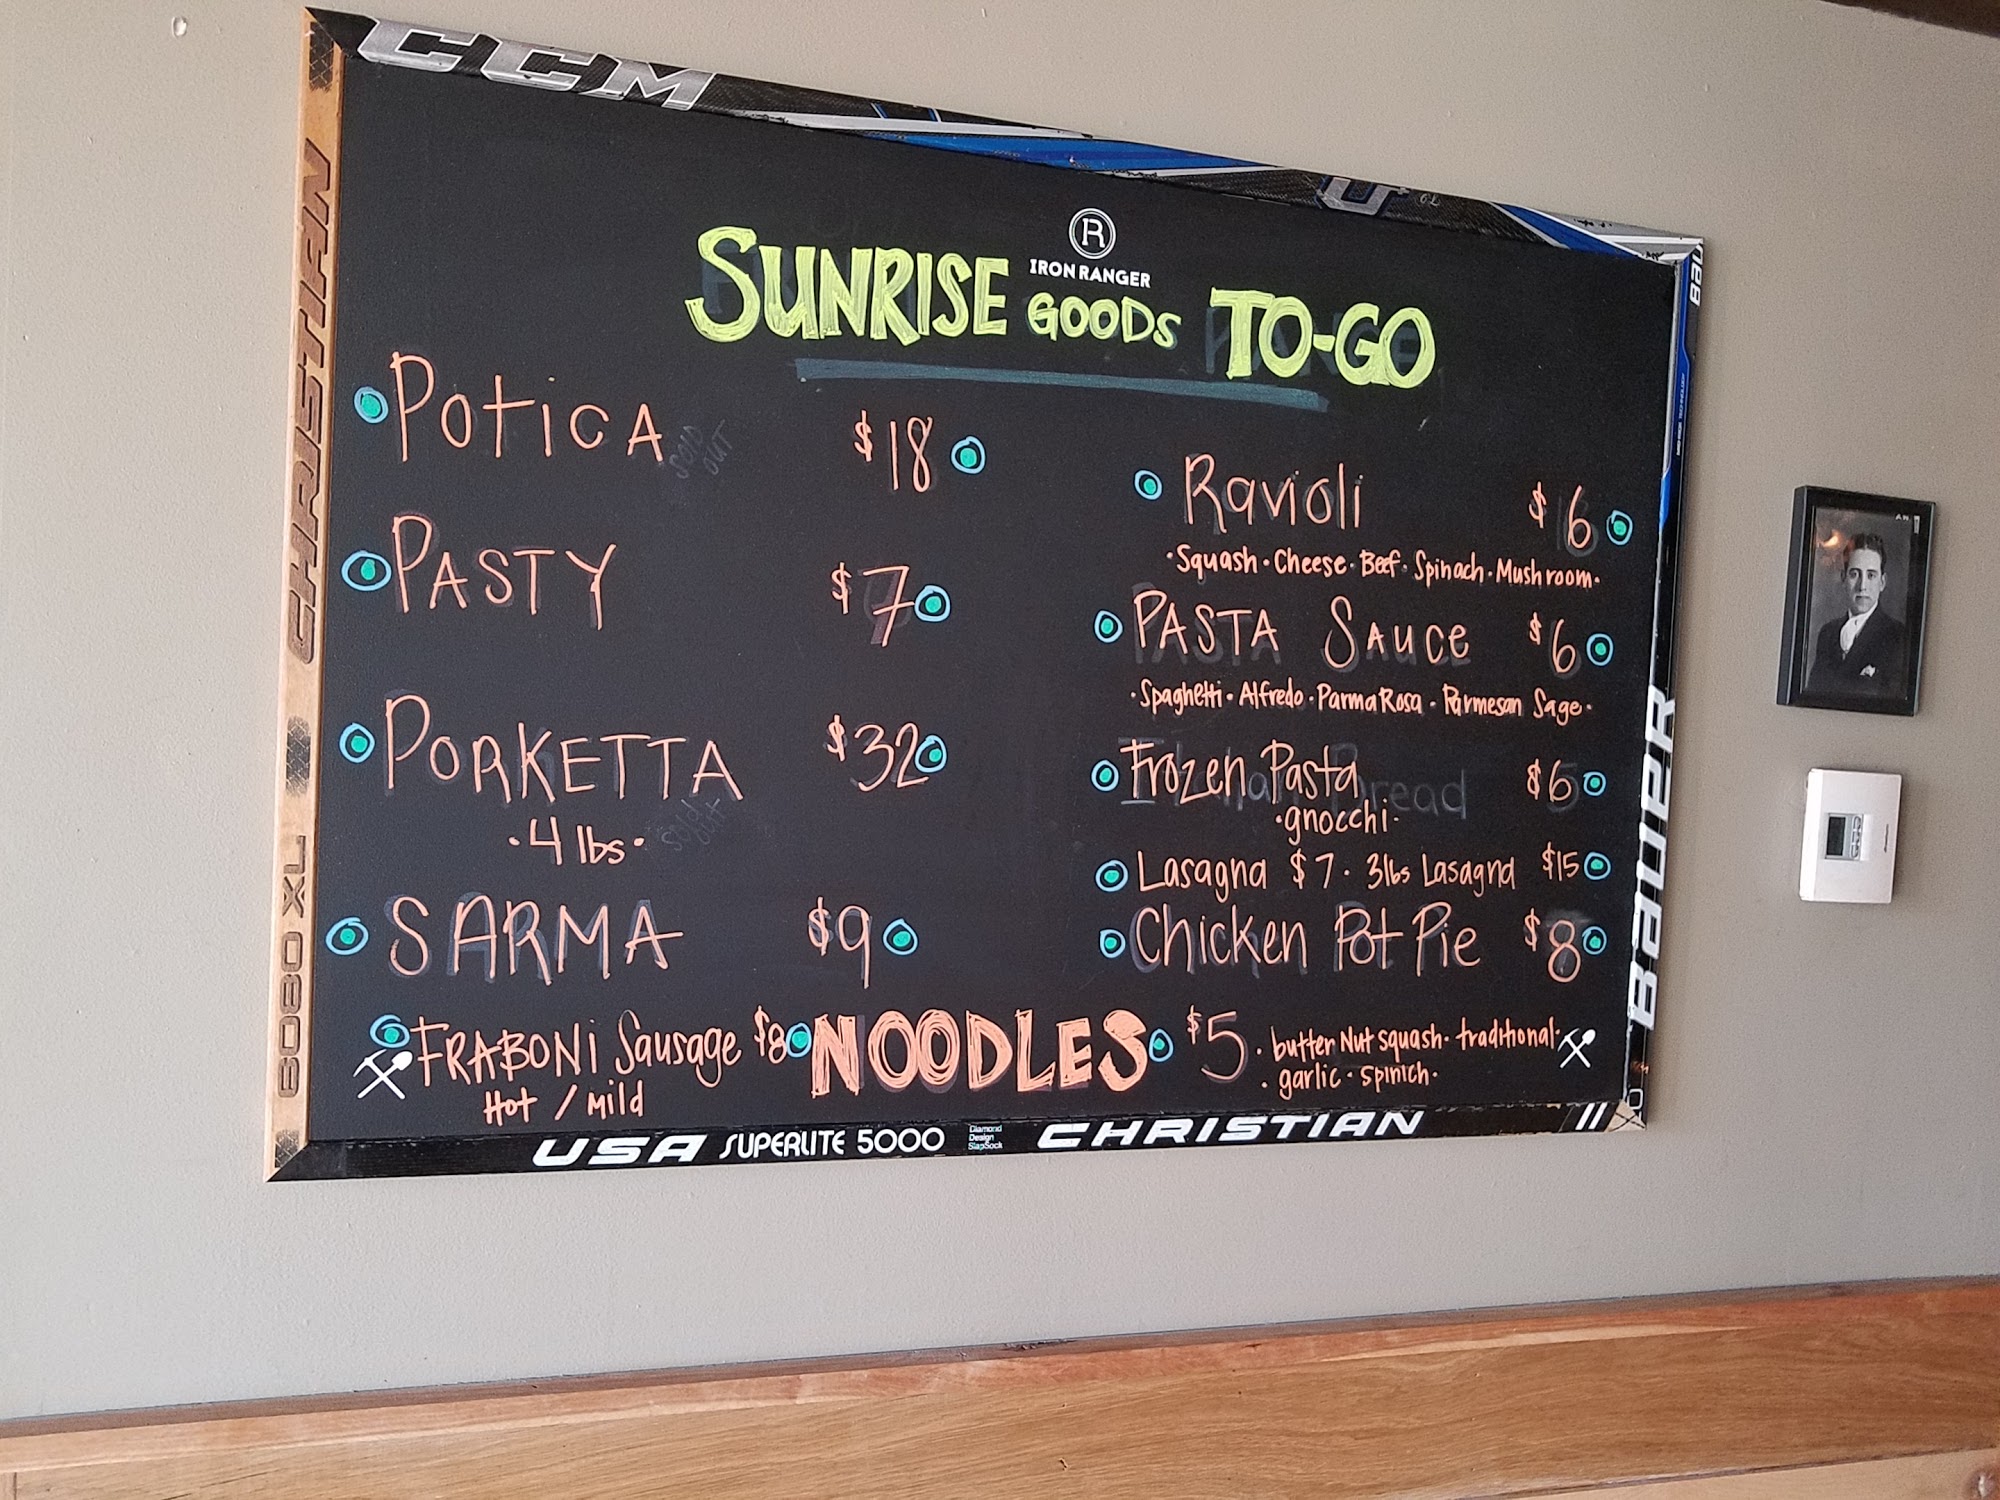 CCM
CHRISTIAN
8080 XL
IRON RANGER
SUNRISE GOODS TO-GO
POTICA $18
SOLD OUT
PASTY $7
PORKETTA $32
•4 lbs•
SOLD OUT
SARMA $9
FRABONI Sausage $8
Hot / Mild
Ravioli $6
•Squash•Cheese•Beef•Spinach•Mushroom•
PASTA SAUCE $6
•Spaghetti•Alfredo•Parma Rosa•Parmesan Sage•
Frozen Pasta $6
•gnocchi•
Lasagna $7• 3lbs Lasagna $15
Chicken Pot Pie $8
NOODLES $5 •butter Nut squash•traditional•
•garlic•spinich•
BAUER
USA SUPERLITE 5000 Diamond Design SlapSock CHRISTIAN